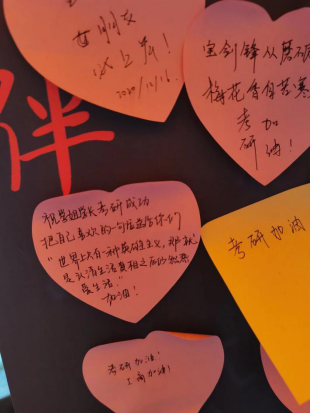 女朋友
必上岸！
2020/12/16.
宝剑锋从磨砺
梅花香自苦寒
考加
研油！
伴
祝学姐学长考研成功
把自己喜欢的一句话送给你们
“世界上只有一种英雄主义，那就
是认清生活真相之后依然
爱生活”
加油！
考研加油
考研加油！
工商加油！